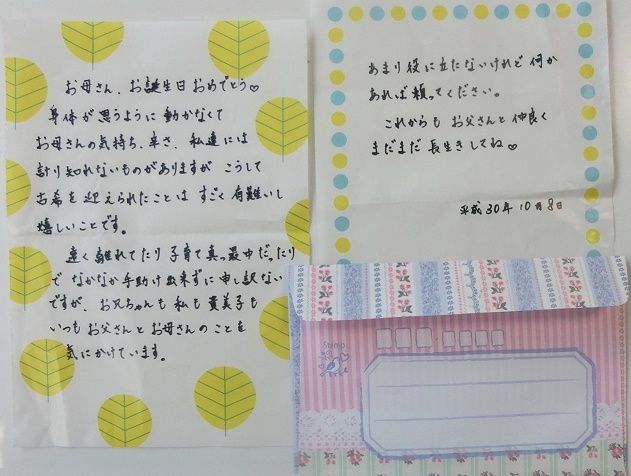 お母さん、お誕生日おめでとう♡
身体が思うように動かなくて
お母さんの気持ち、辛さ、私達には
計り知れないものがありますが こうして
古希を迎えられたことは すごく有難いし
嬉しいことです。
遠く離れてたり 子育て真っ最中だったり
で なかなか手助け出来ずに申し訳ない
ですが、お兄ちゃんも 私も 貴美子も
いつも お父さんと お母さんのことを
気にかけています。
あまり役に立たないけれど 何か
あれば頼ってください。
これからも お父さんと 仲良く
まだまだ 長生きしてね♡
平成30年10月8日
Stamp